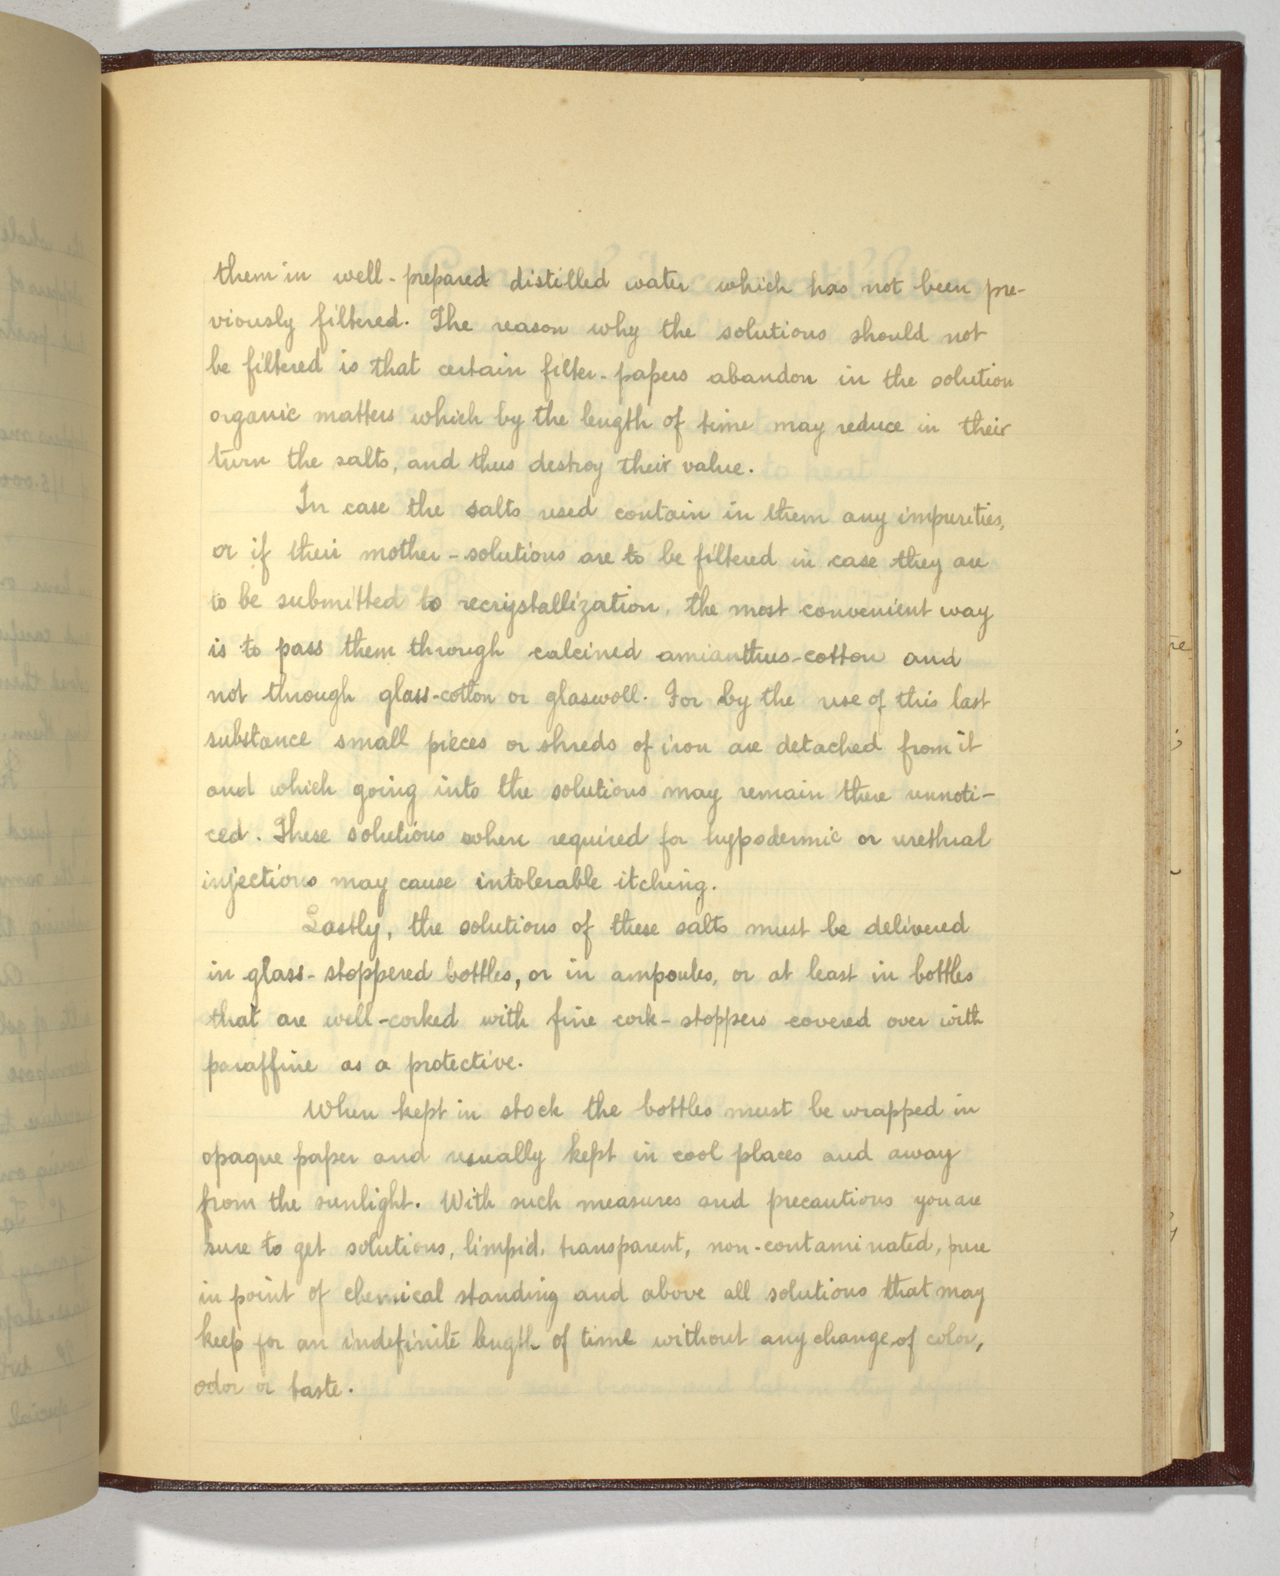 them in well-prepared distilled water which has not been pre-
viously filtered. The reason why the solutions should not
be filtered is that certain filter-papers abandon in the solution
organic matters which by the length of time may reduce in their
turn the salts, and thus destroy their value.
In case the salts used contain in them any impurities,
or if their mother-solutions are to be filtered in case they are
to be submitted to recrystallization, the most convenient way
is to pass them through calcined amianthus-cotton and
not through glass-cotton or glaswoll. For by the use of this last
substance small pieces or shreds of iron are detached from it
and which going into the solutions may remain there unnoti-
ced. These solutions when required for hypodermic or urethral
injections may cause intolerable itching.
Lastly, the solutions of these salts must be delivered
in glass-stoppered bottles, or in ampoules, or at least in bottles
that are well-corked with fine cork-stoppers covered over with
paraffine as a protective.
When kept in stock the bottles must be wrapped in
opaque paper and usually kept in cool places and away
from the sunlight. With such measures and precautions you are
sure to get solutions, limpid, transparent, non-contaminated, pure
in point of chemical standing and above all solutions that may
keep for an indefinite length of time without any change of color,
odor or taste.